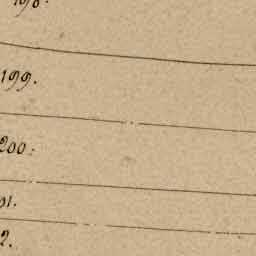 198.
199.
200.
01.
2.